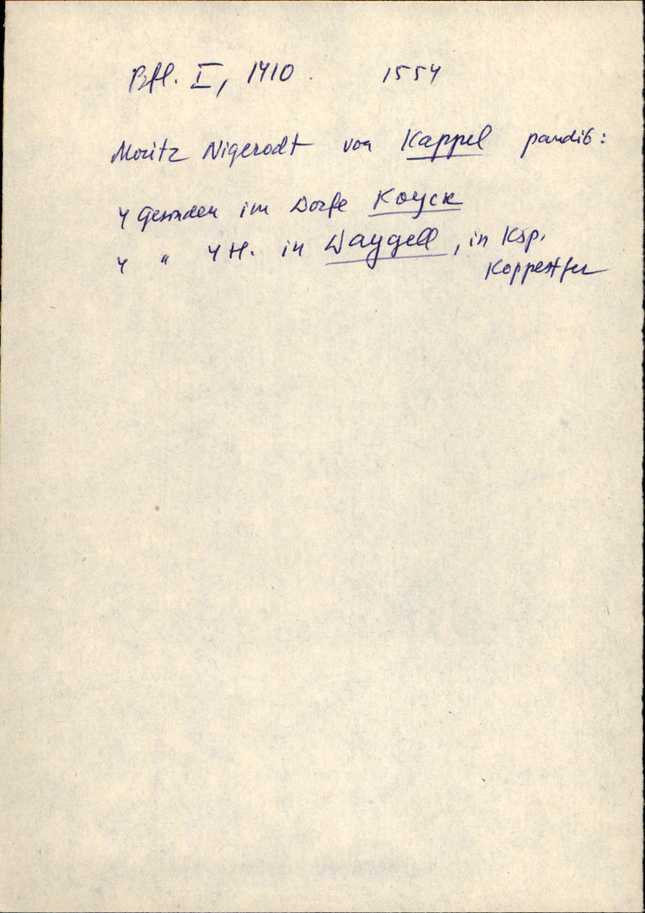 Bfl. I, 1410. 1554
Moritz Nigerodt von Kappel pandib:
4 Gesinden im Dorfe Koyck
4 " 4 H. in Waygell, in Ksp.
Koppestfer